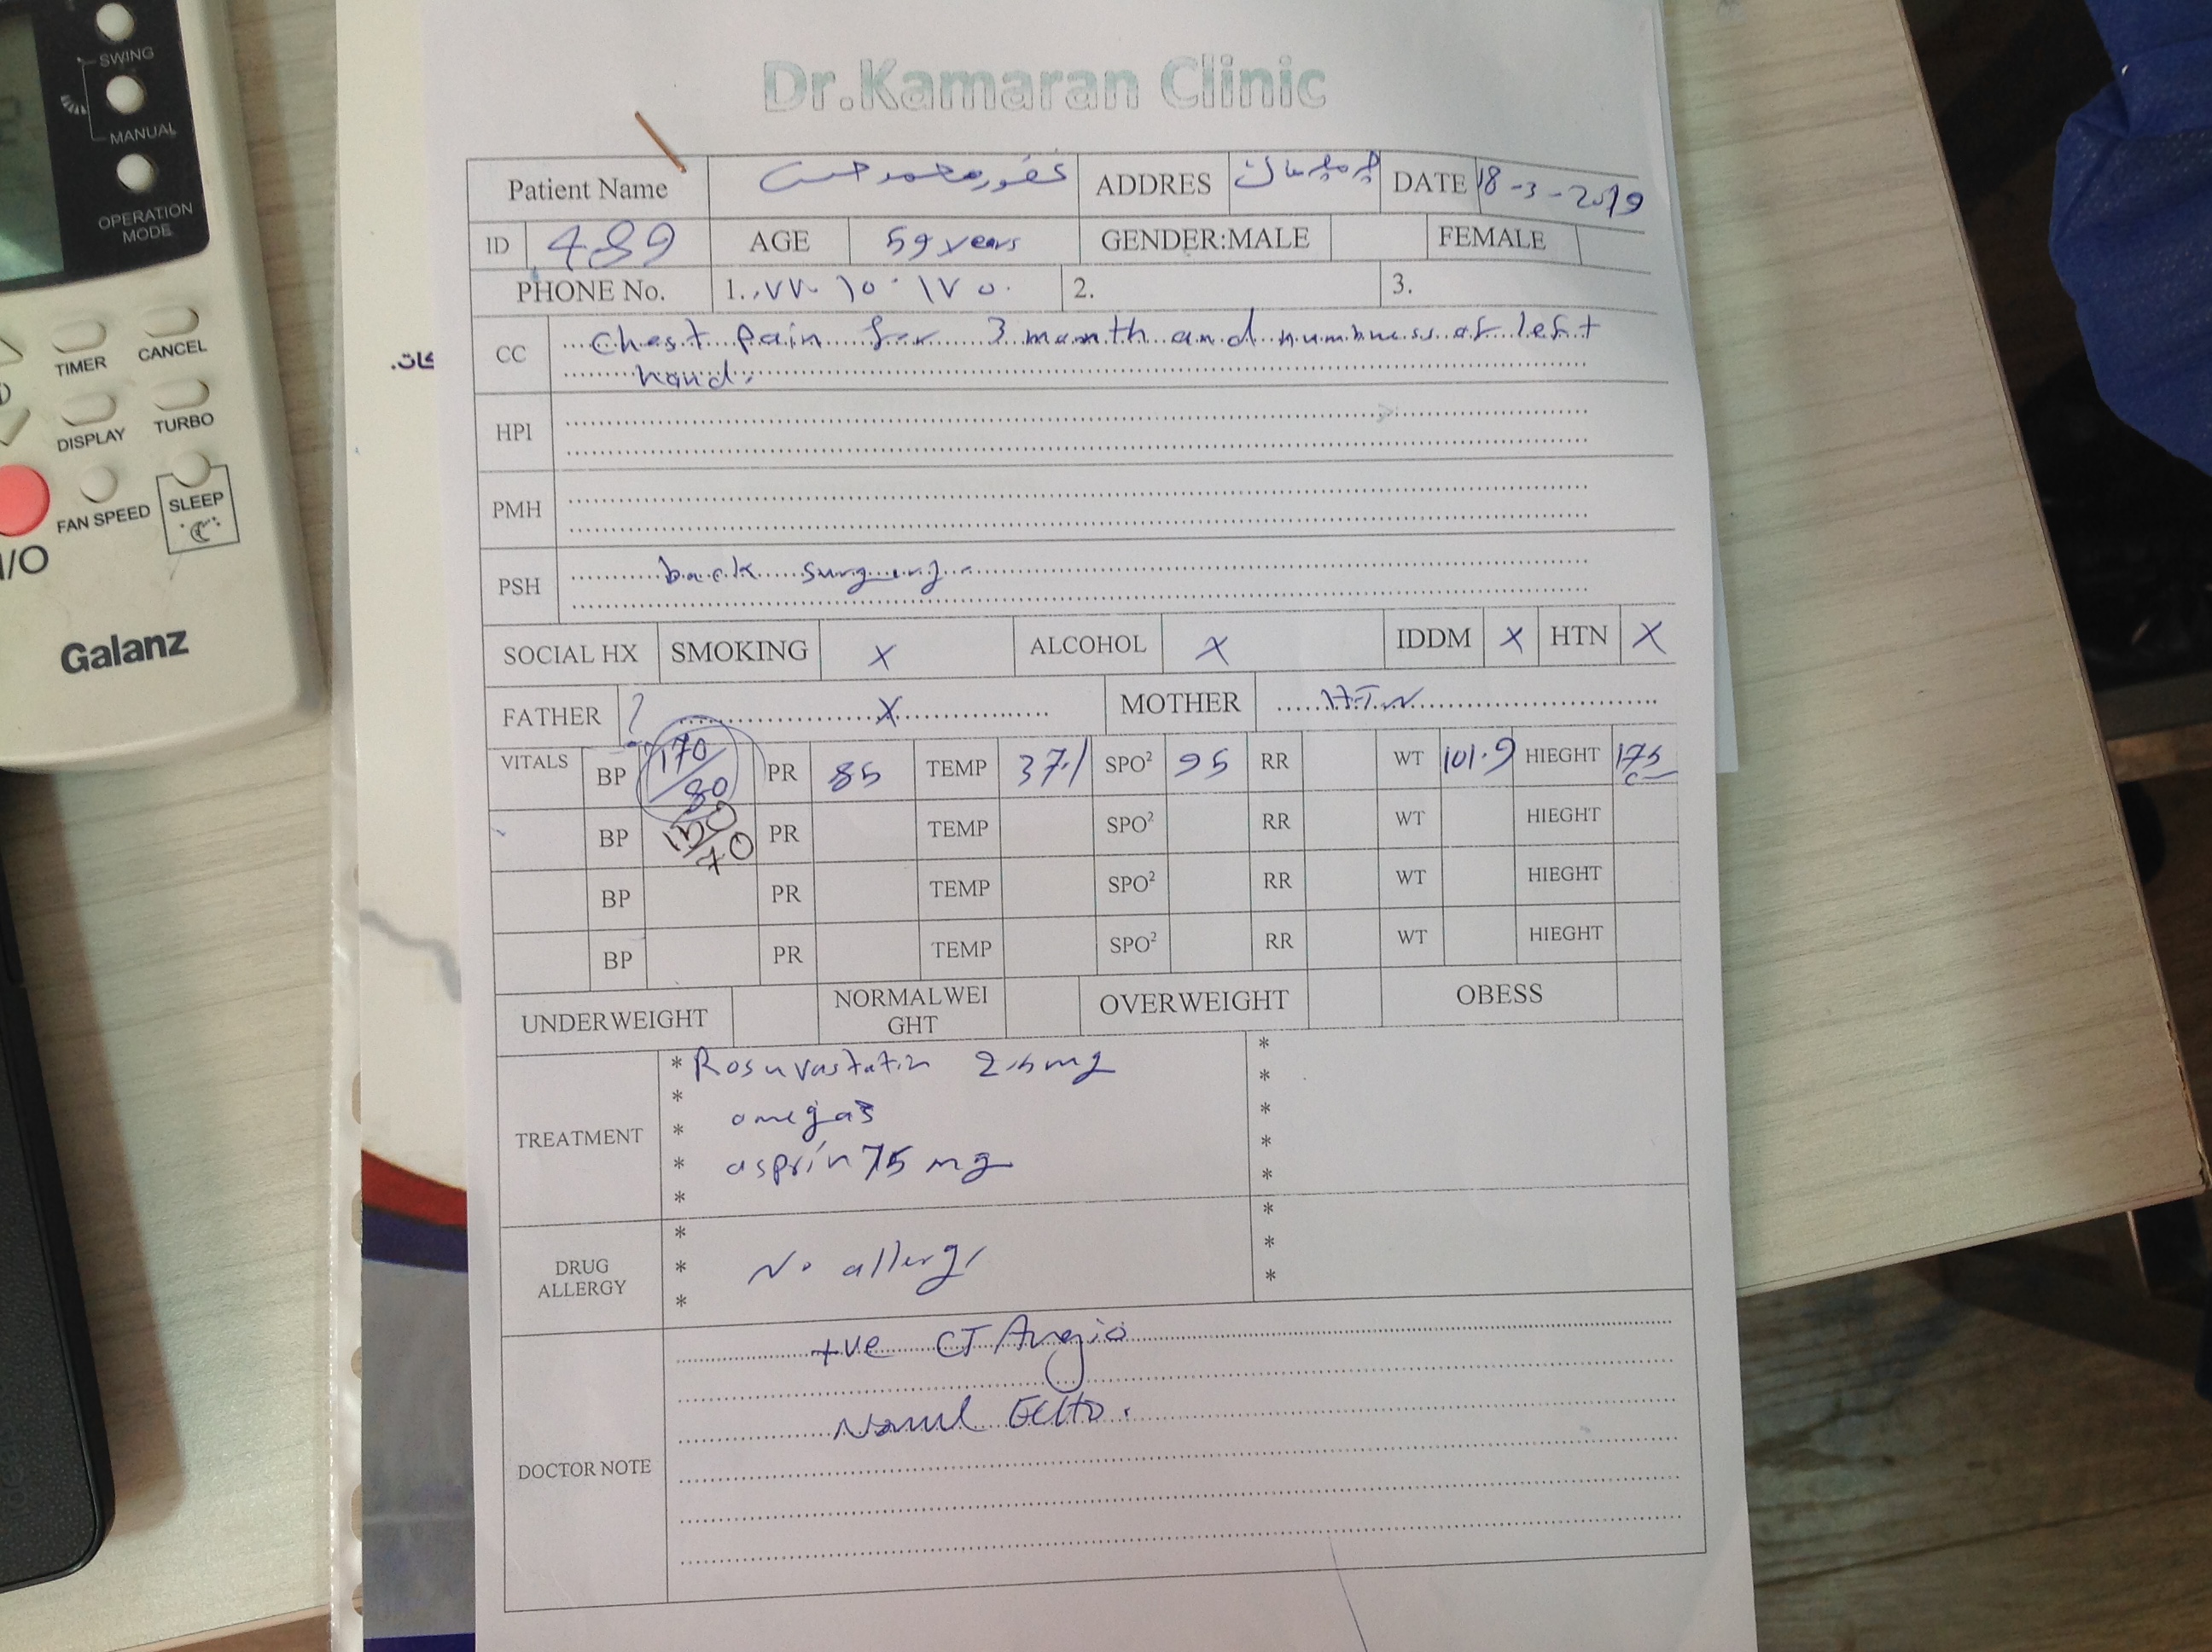 Dr.Kamaran Clinic
Patient Name غفور محمد حسن ADDRES چەمچەماڵ DATE 18-3-2019
ID 489 AGE 59 years GENDER:MALE FEMALE
PHONE No. 1. 2. 3.
CC chest pain for 3 month and numbness of left
hand.
HPI
PMH
PSH back surgery
SOCIAL HX SMOKING X ALCOHOL X IDDM X HTN X
FATHER ? X MOTHER HTN
VITALS BP 170/80 PR 85 TEMP 37.1 SPO² 95 RR WT 101.9 HIEGHT 175
BP 130/70 PR TEMP SPO² RR WT HIEGHT
BP PR TEMP SPO² RR WT HIEGHT
BP PR TEMP SPO² RR WT HIEGHT
UNDERWEIGHT NORMALWEI
GHT OVERWEIGHT OBESS
TREATMENT
* Rosuvastatin mg *
* *
* omega3 *
* asprin 75 mg *
* *
DRUG
ALLERGY
* *
* No allergy *
* *
DOCTOR NOTE
+ve CT Angio
Normal Echo.
SWING
MANUAL
OPERATION
MODE
TIMER CANCEL
DISPLAY TURBO
FAN SPEED SLEEP
I/O
Galanz
كات.